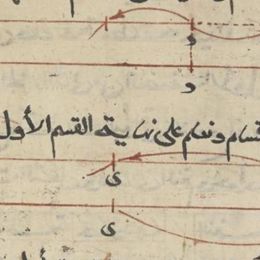 د
د
قسام ونعلم على نهاية القسم الأول
ى
ى